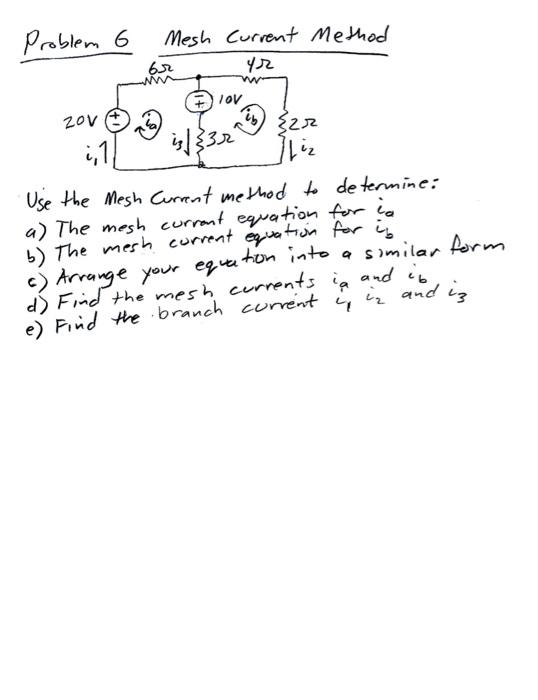 Problem 6 Mesh Current Method
6Ω 4Ω
10V
20V + - ia + - ib 2Ω
i3 3Ω
i1 i2
Use the Mesh Current method to determine:
a) The mesh current equation for ia
b) The mesh current equation for ib
c) Arrange your equation into a similar form
d) Find the mesh currents ia and ib
e) Find the branch current i1 i2 and i3